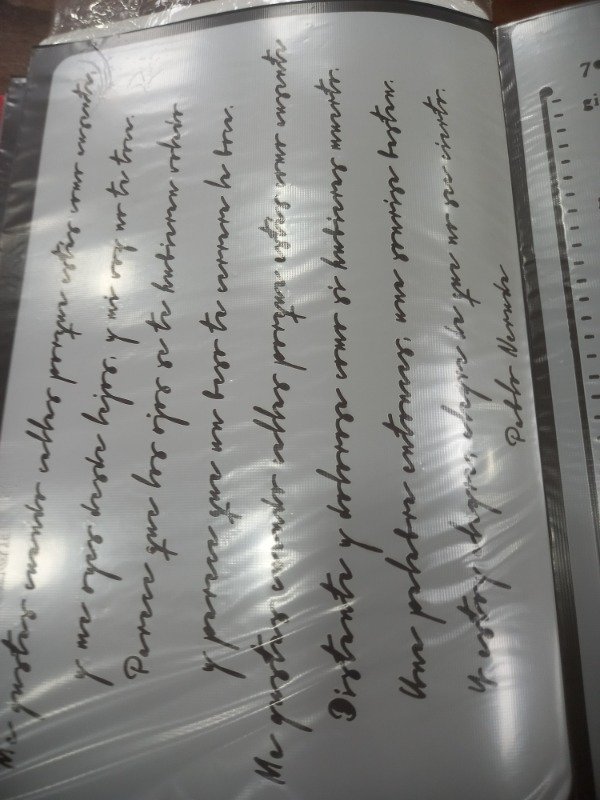 Me gustas cuando callas porque estas como ausente
y me oyes desde lejos, y mi voz no te toca.
Parece que los ojos se te hubieran volado
y parece que un beso te cerrara la boca.
Me gustas cuando callas porque estas como ausente
Distante y dolorosa como si hubieras muerto.
Una palabra entonces, una sonrisa bastan.
Y estoy alegre, alegre de que no sea cierto.
Pablo Neruda